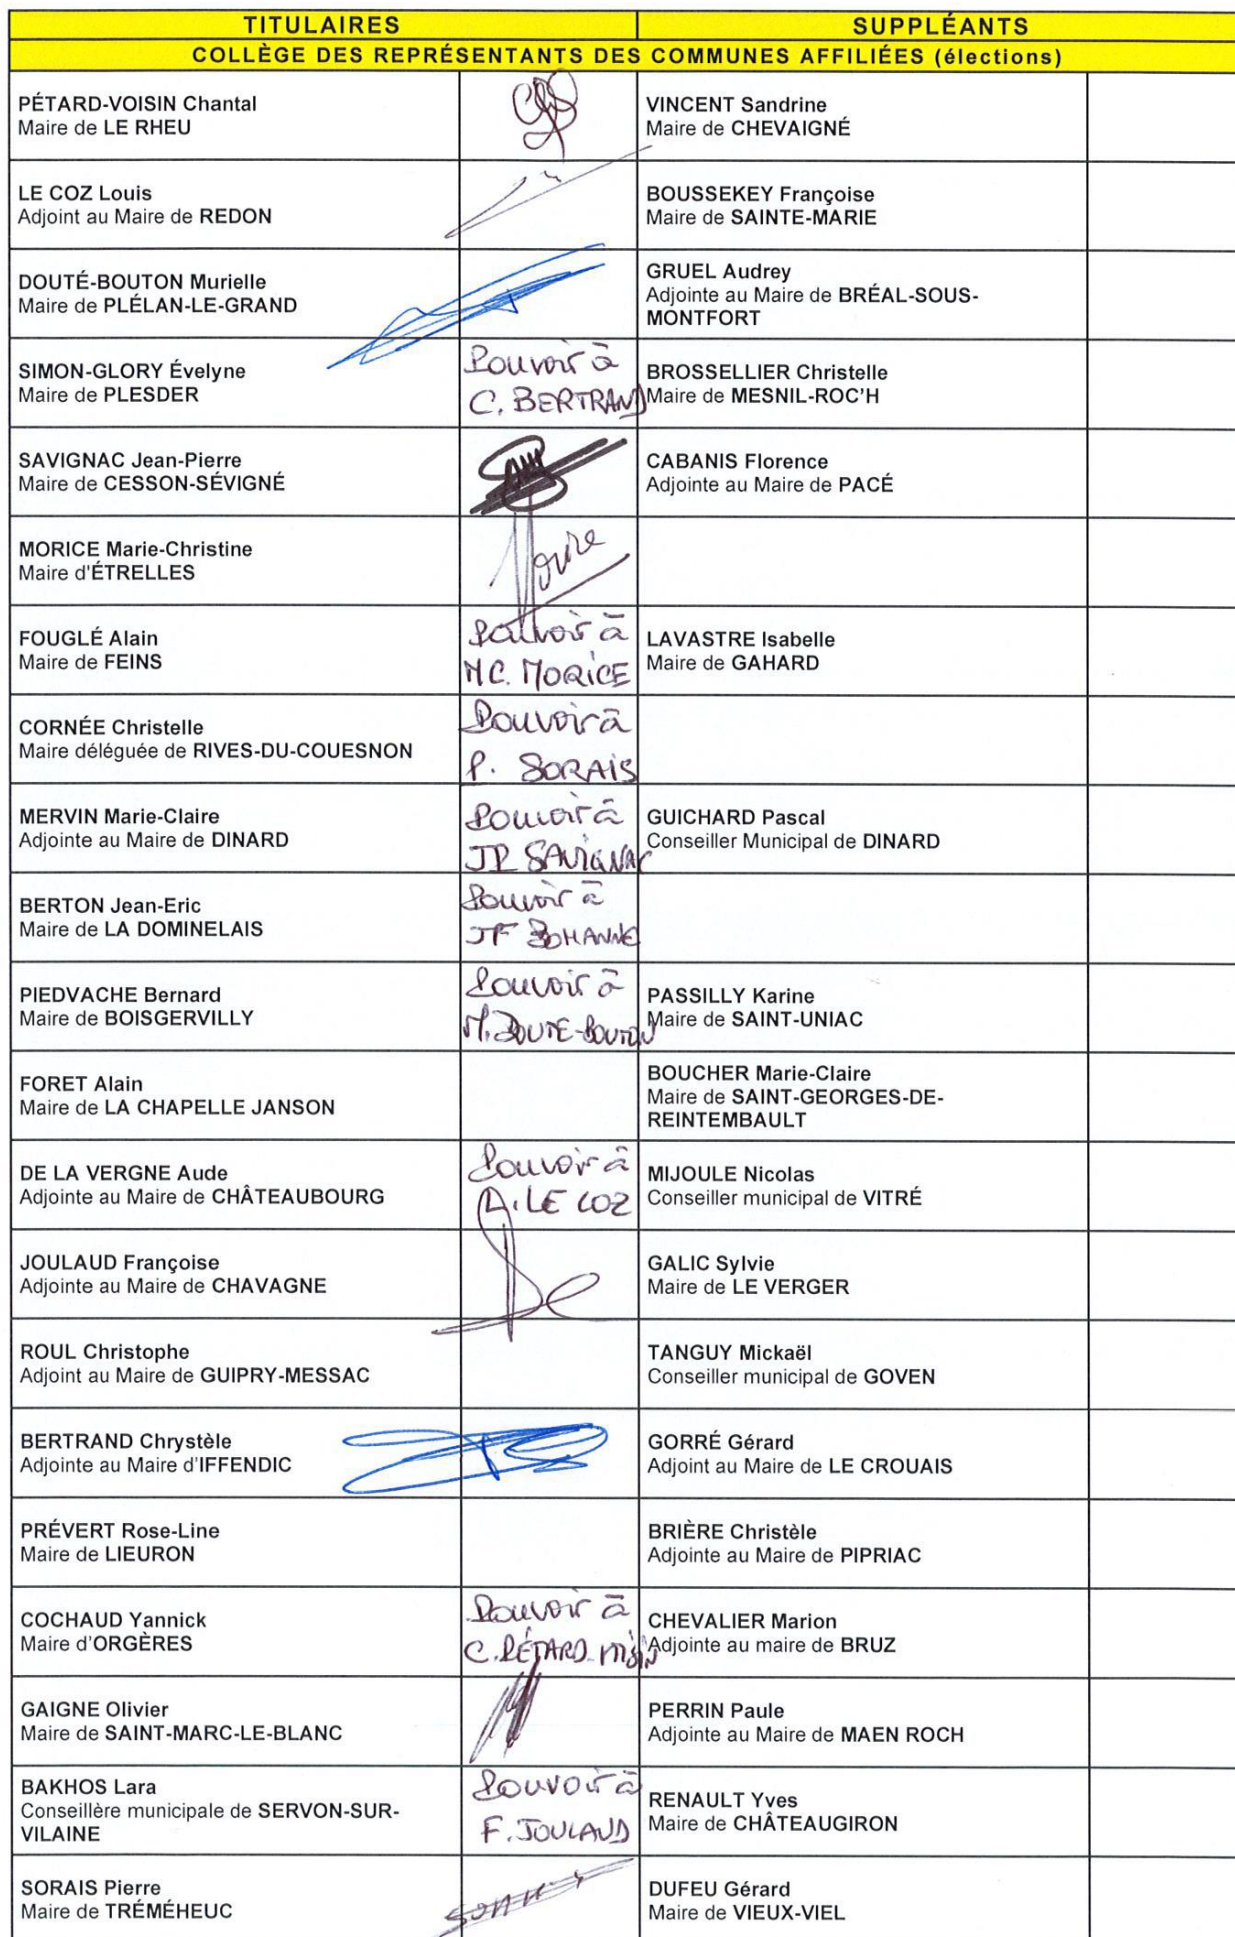 TITULAIRES SUPPLÉANTS
COLLÈGE DES REPRÉSENTANTS DES COMMUNES AFFILIÉES (élections)
PÉTARD-VOISIN Chantal
Maire de LE RHEU
VINCENT Sandrine
Maire de CHEVAIGNÉ
LE COZ Louis
Adjoint au Maire de REDON
BOUSSEKEY Françoise
Maire de SAINTE-MARIE
DOUTÉ-BOUTON Murielle
Maire de PLÉLAN-LE-GRAND
GRUEL Audrey
Adjointe au Maire de BRÉAL-SOUS-
MONTFORT
SIMON-GLORY Évelyne
Maire de PLESDER
Pouvoir à
C. BERTRAND
BROSSELLIER Christelle
Maire de MESNIL-ROC'H
SAVIGNAC Jean-Pierre
Maire de CESSON-SÉVIGNÉ
CABANIS Florence
Adjointe au Maire de PACÉ
MORICE Marie-Christine
Maire d'ÉTRELLES
FOUGLÉ Alain
Maire de FEINS
Pouvoir à
MC. MORICE
LAVASTRE Isabelle
Maire de GAHARD
CORNÉE Christelle
Maire déléguée de RIVES-DU-COUESNON
Pouvoir à
P. SORAIS
MERVIN Marie-Claire
Adjointe au Maire de DINARD
Pouvoir à
JP SAVIGNAC
GUICHARD Pascal
Conseiller Municipal de DINARD
BERTON Jean-Eric
Maire de LA DOMINELAIS
Pouvoir à
JF BOHANNE
PIEDVACHE Bernard
Maire de BOISGERVILLY
Pouvoir à
M. DOUTE-BOUTON
PASSILLY Karine
Maire de SAINT-UNIAC
FORET Alain
Maire de LA CHAPELLE JANSON
BOUCHER Marie-Claire
Maire de SAINT-GEORGES-DE-
REINTEMBAULT
DE LA VERGNE Aude
Adjointe au Maire de CHÂTEAUBOURG
Pouvoir à
A. LE COZ
MIJOULE Nicolas
Conseiller municipal de VITRÉ
JOULAUD Françoise
Adjointe au Maire de CHAVAGNE
GALIC Sylvie
Maire de LE VERGER
ROUL Christophe
Adjoint au Maire de GUIPRY-MESSAC
TANGUY Mickaël
Conseiller municipal de GOVEN
BERTRAND Chrystèle
Adjointe au Maire d'IFFENDIC
GORRÉ Gérard
Adjoint au Maire de LE CROUAIS
PRÉVERT Rose-Line
Maire de LIEURON
BRIÈRE Christèle
Adjointe au Maire de PIPRIAC
COCHAUD Yannick
Maire d'ORGÈRES
Pouvoir à
C. PÉTARD-VOISIN
CHEVALIER Marion
Adjointe au maire de BRUZ
GAIGNE Olivier
Maire de SAINT-MARC-LE-BLANC
PERRIN Paule
Adjointe au Maire de MAEN ROCH
BAKHOS Lara
Conseillère municipale de SERVON-SUR-
VILAINE
Pouvoir à
F. JOULAUD
RENAULT Yves
Maire de CHÂTEAUGIRON
SORAIS Pierre
Maire de TRÉMÉHEUC
DUFEU Gérard
Maire de VIEUX-VIEL